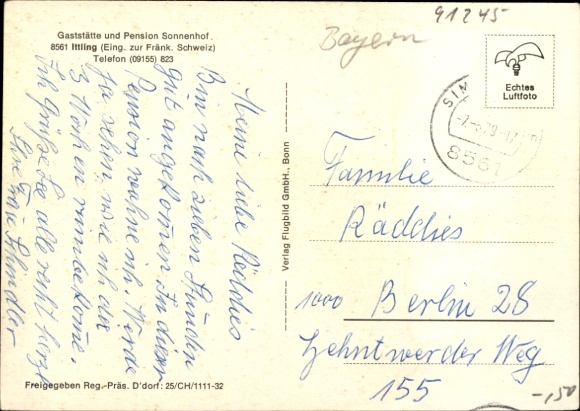 91245
Bayern
Gaststätte und Pension Sonnenhof
8561 Ittling (Eing. zur Fränk. Schweiz)
Telefon (09155) 823
Meine liebe Räddies
Bin nach sieben Stunden
gut angekommen In dieser
Pension wohne ich Werde
ja sehn wie ich die
3 Wochen rumbekome.
Ich grüße Sie alle recht herzl
Ihre Frau Schindler
Verlag Flugbild GmbH., Bonn
Echtes
Luftfoto
SIM
79-17
8561
Familie
Räddies
1000 Berlin 28
Zehntwerder Weg
155
Freigegeben Reg.-Präs. D'dorf: 25/CH/1111-32
-,50